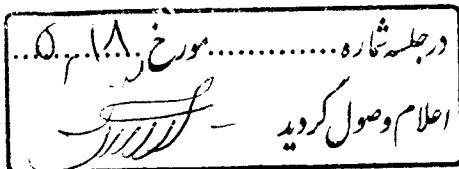 در جلسه شماره ............. مورخ ...۱۸...۵...
اعلام وصول گردید -